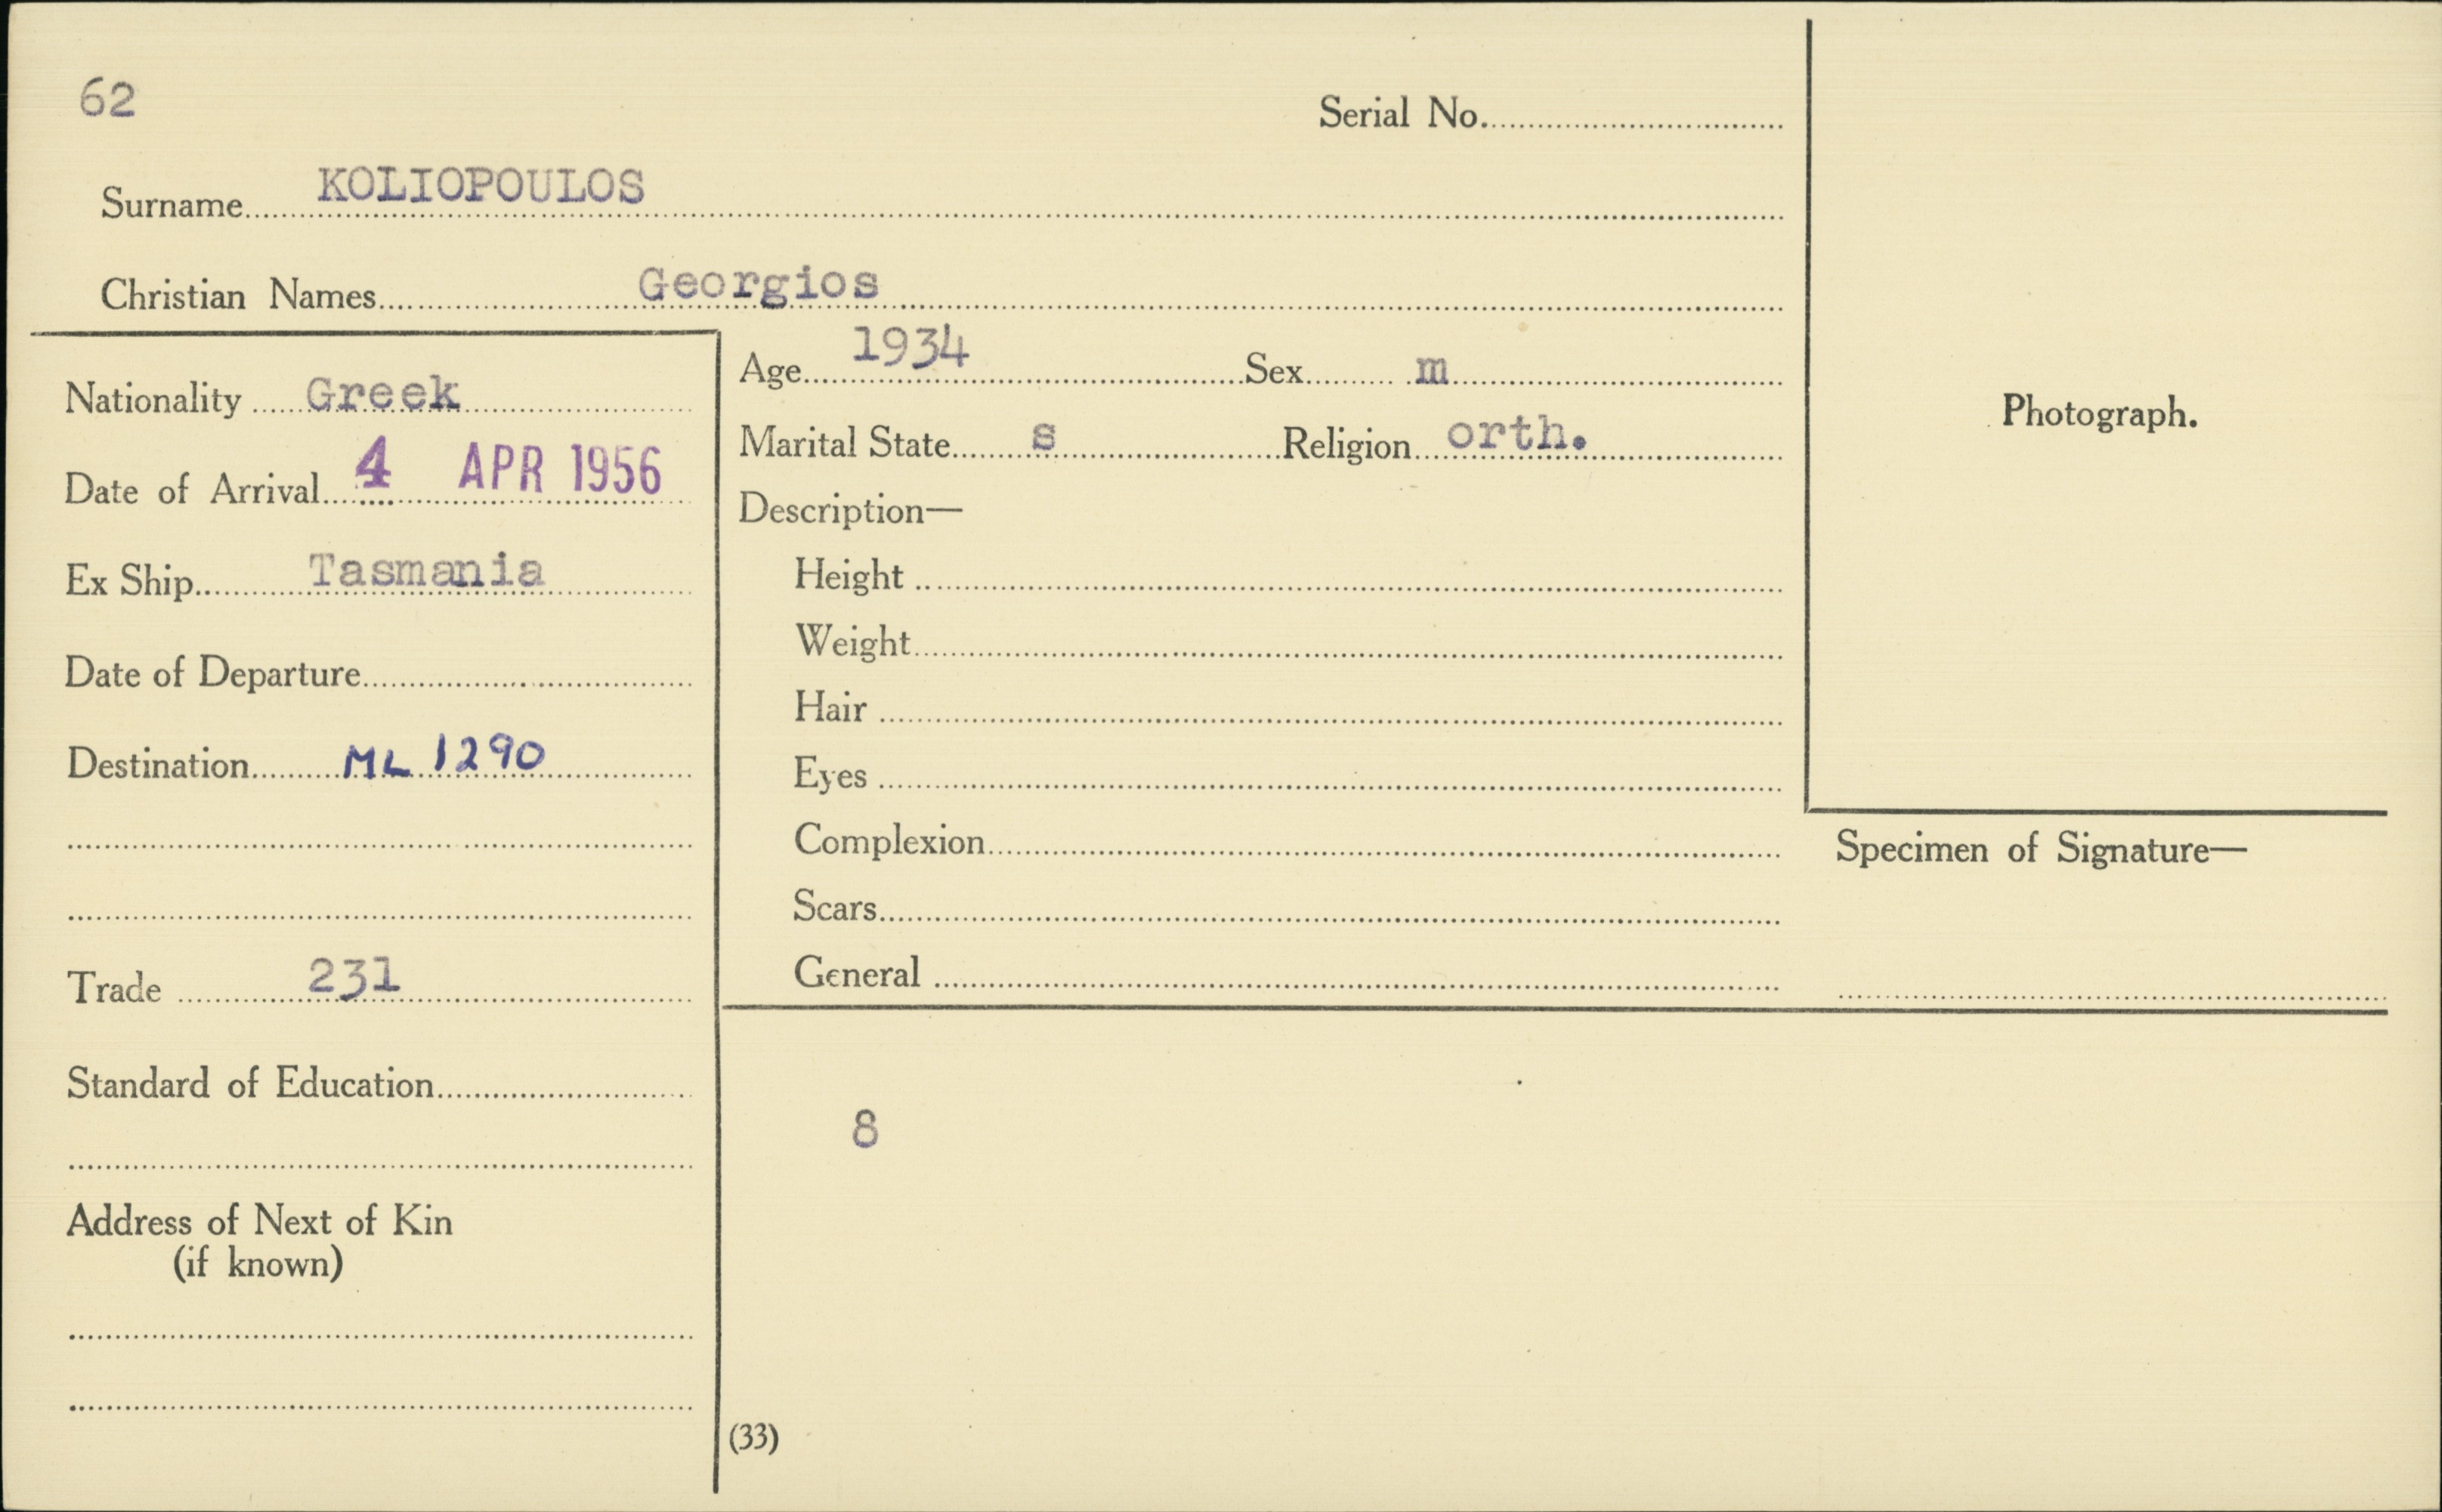 62
Serial No.
Surname KOLIOPOULOS
Christian Names Georgios
Nationality Greek
Date of Arrival 4 APR 1956
Ex Ship Tasmania
Date of Departure
Destination ML 1290
Trade 231
Standard of Education
Address of Next of Kin
(if known)
Age 1934 Sex m
Marital State s Religion orth.
Description—
Height
Weight
Hair
Eyes
Complexion
Scars
General
8
(33)
Photograph.
Specimen of Signature—